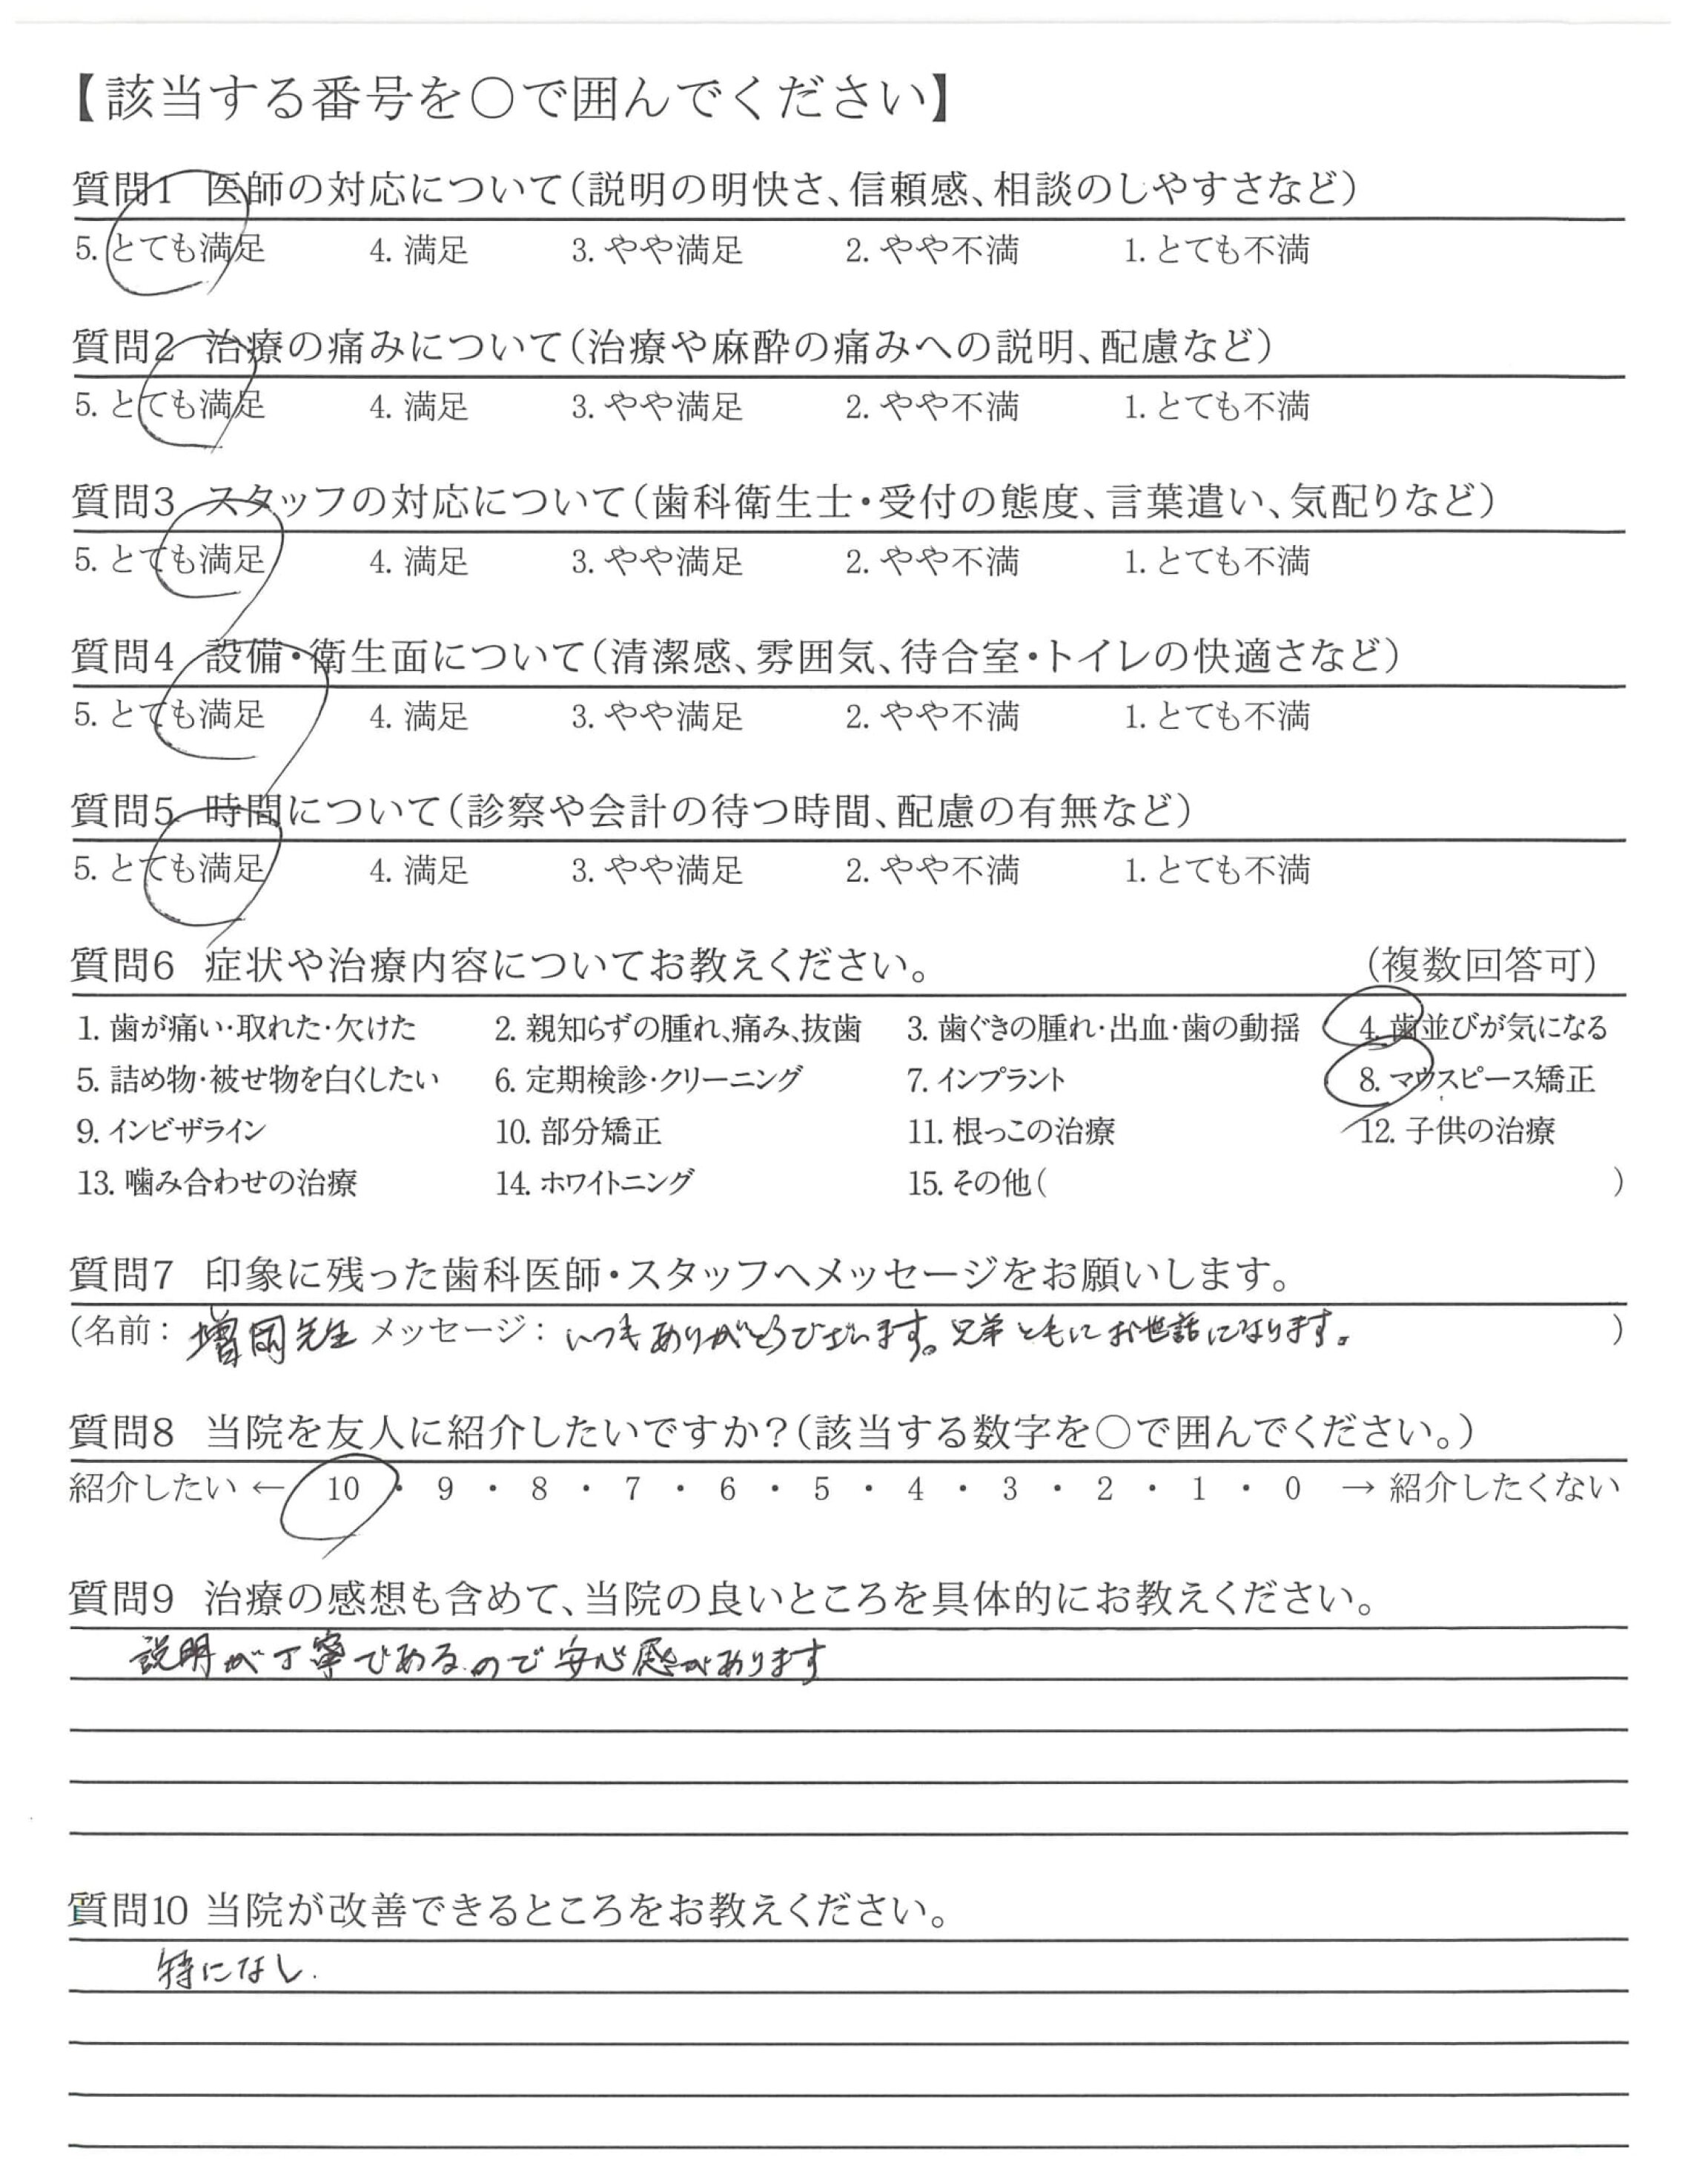 【該当する番号を○で囲んでください】
質問1 医師の対応について(説明の明快さ、信頼感、相談のしやすさなど)
5. とても満足 4. 満足 3. やや満足 2. やや不満 1. とても不満
質問2 治療の痛みについて(治療や麻酔の痛みへの説明、配慮など)
5. とても満足 4. 満足 3. やや満足 2. やや不満 1. とても不満
質問3 スタッフの対応について(歯科衛生士・受付の態度、言葉遣い、気配りなど)
5. とても満足 4. 満足 3. やや満足 2. やや不満 1. とても不満
質問4 設備・衛生面について(清潔感、雰囲気、待合室・トイレの快適さなど)
5. とても満足 4. 満足 3. やや満足 2. やや不満 1. とても不満
質問5 時間について(診察や会計の待つ時間、配慮の有無など)
5. とても満足 4. 満足 3. やや満足 2. やや不満 1. とても不満
質問6 症状や治療内容についてお教えください。 (複数回答可)
1. 歯が痛い・取れた・欠けた 2. 親知らずの腫れ、痛み、抜歯 3. 歯ぐきの腫れ・出血・歯の動揺 4. 歯並びが気になる
5. 詰め物・被せ物を白くしたい 6. 定期検診・クリーニング 7. インプラント 8. マウスピース矯正
9. インビザライン 10. 部分矯正 11. 根っこの治療 12. 子供の治療
13. 噛み合わせの治療 14. ホワイトニング 15. その他( )
質問7 印象に残った歯科医師・スタッフへメッセージをお願いします。
(名前: 増岡先生 メッセージ: いつもありがとうございます。兄弟ともにお世話になります。 )
質問8 当院を友人に紹介したいですか?(該当する数字を○で囲んでください。)
紹介したい ← 10 ・ 9 ・ 8 ・ 7 ・ 6 ・ 5 ・ 4 ・ 3 ・ 2 ・ 1 ・ 0 → 紹介したくない
質問9 治療の感想も含めて、当院の良いところを具体的にお教えください。
説明が丁寧であるので安心感があります
質問10 当院が改善できるところをお教えください。
特になし.